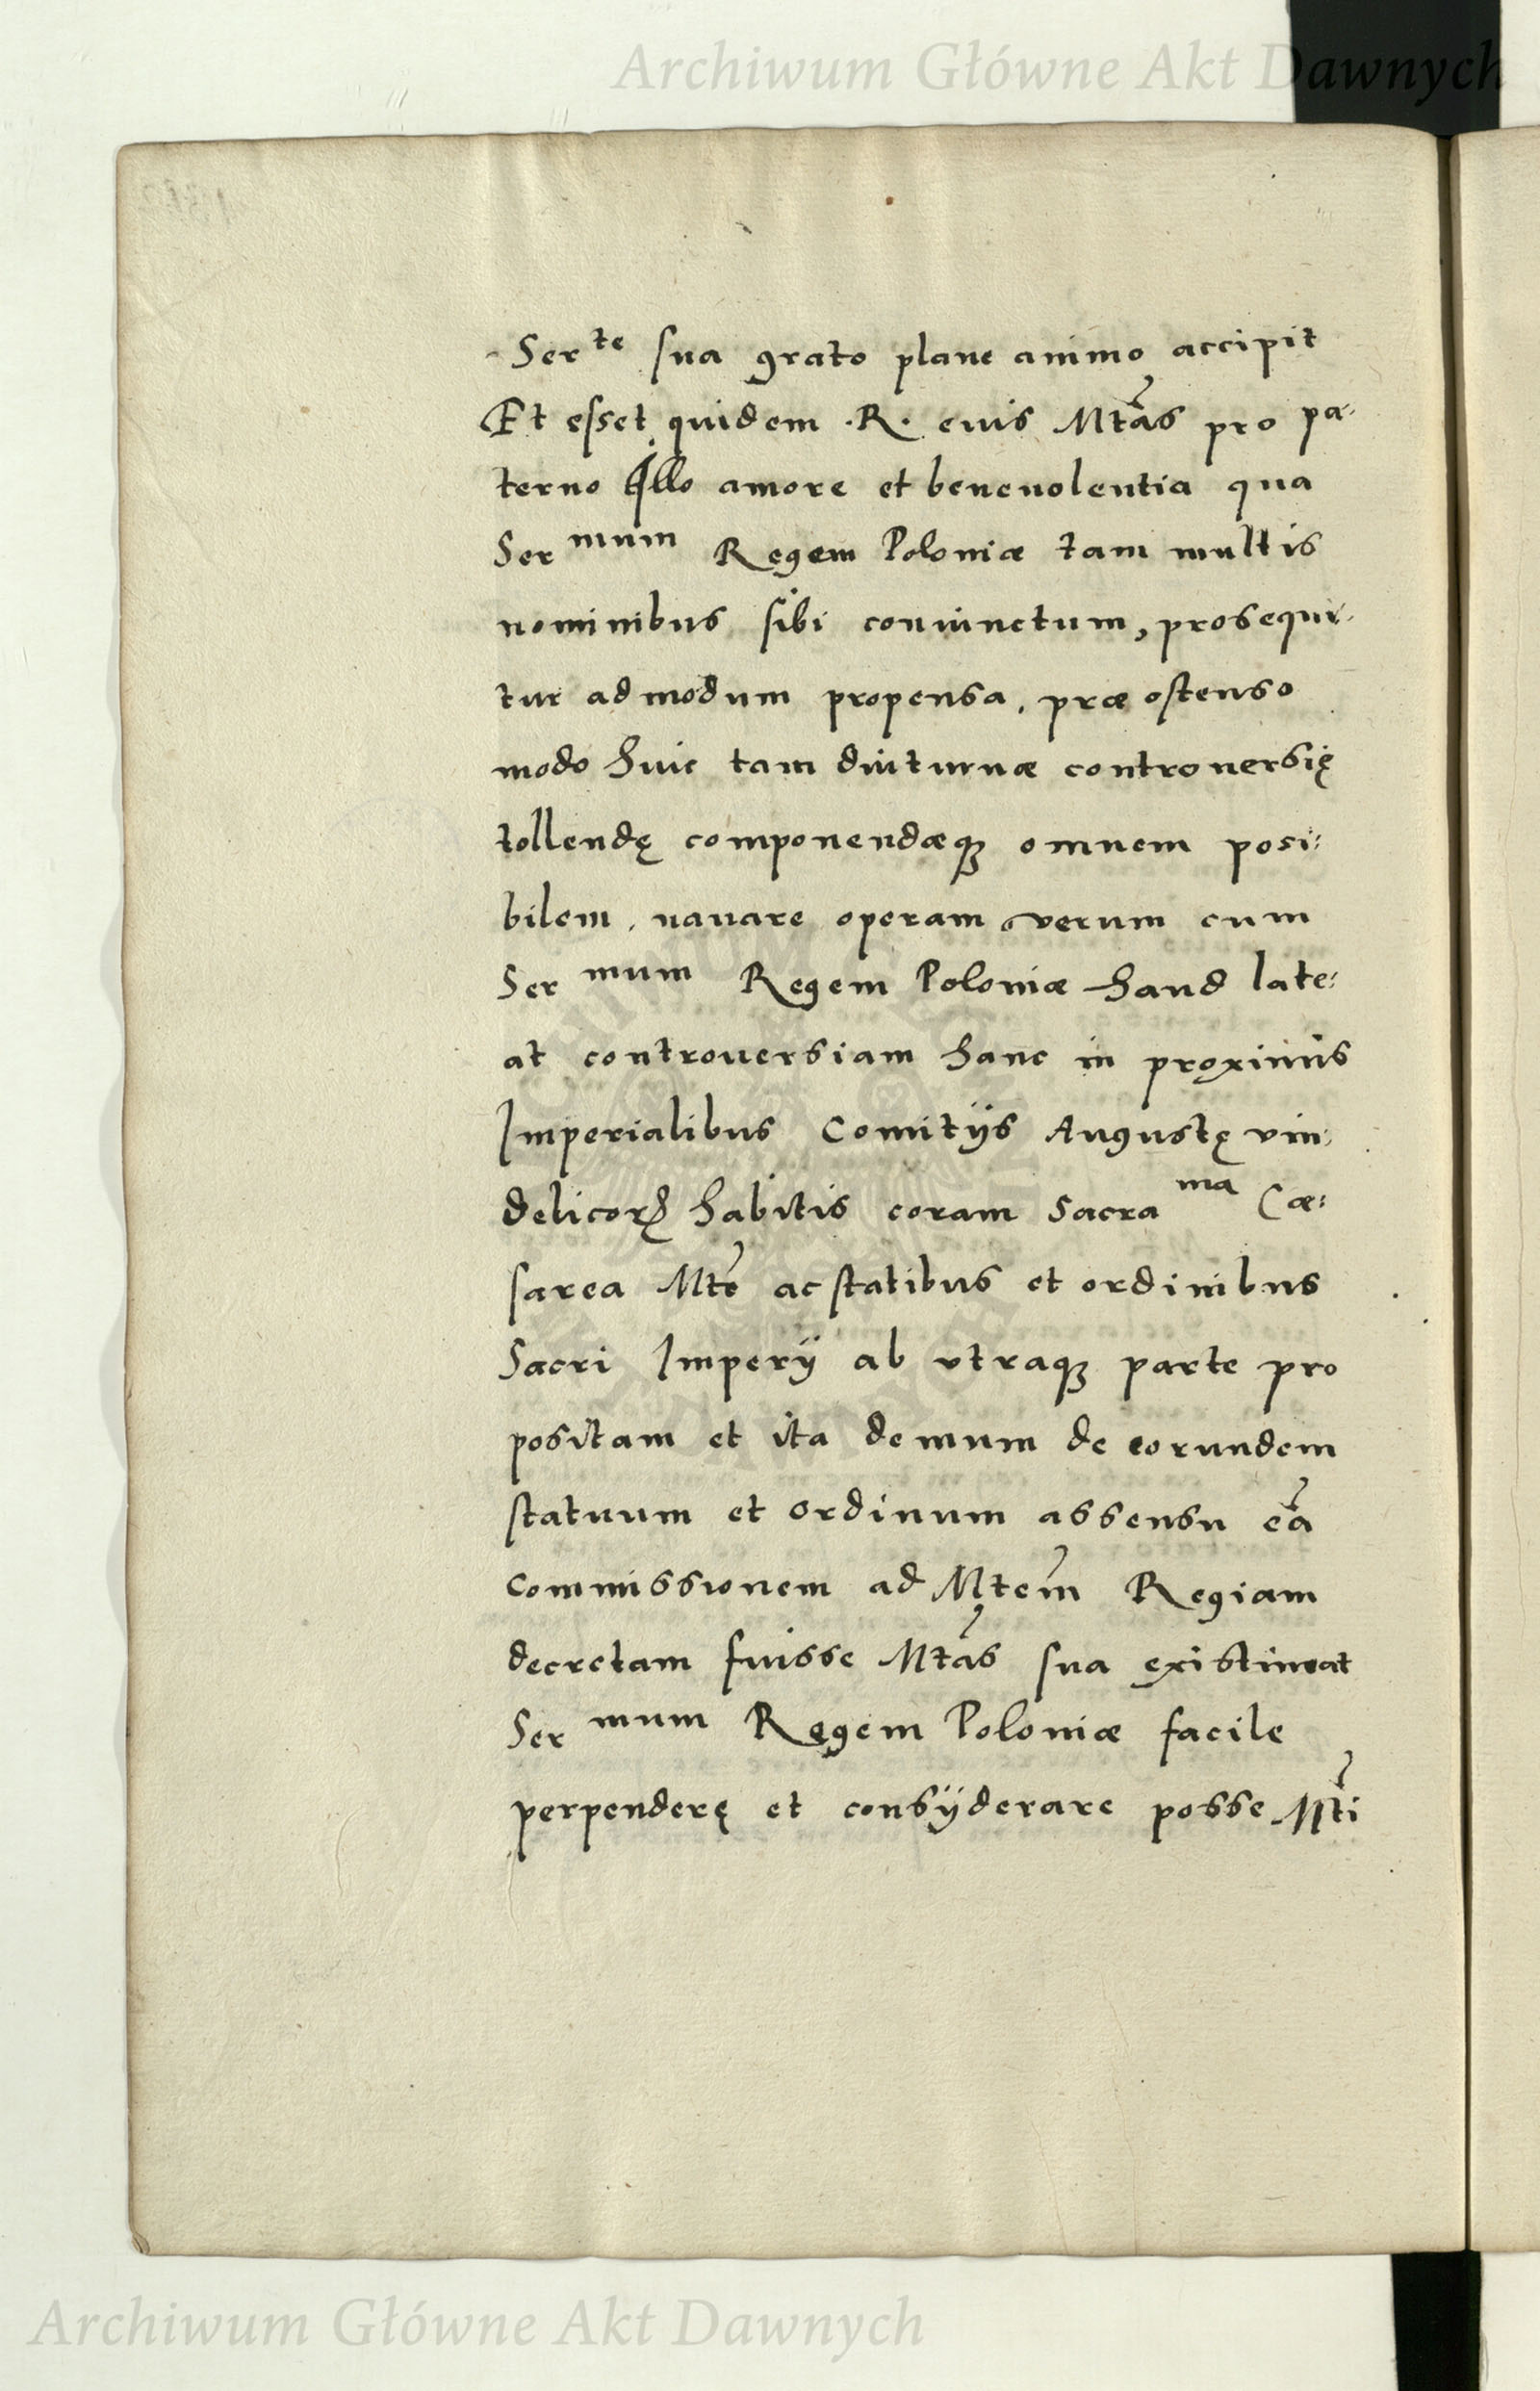 Archiwum Główne Akt Dawnych
Ser te sua grato plane animo accipit
Et esset quidem .R. euis Mtas pro pa-
terno Illo amore et beneuolentia qua
Ser mum Regem Poloniæ tam multis
nominibus sibi coniunctum, prosequi-
tur admodum propensa, præ ostenso
modo huic tam diuturnæ controuersię
tollendę componendæq3 omnem posi:
bilem, nauare operam verum cum
Ser mum Regem Poloniæ haud late:
at controuersiam hanc in proximis
Imperialibus Comitÿs Augustę vin:
delicorꝝ habitis coram Sacra ma Cæ:
sarea Mte ac statibus et ordinibus
Sacri Imperÿ ab vtraq3 parte pro
positam et ita demum de eorundem
statuum et ordinum assensu eã
commissionem ad Mtem Regiam
decretam fuisse Mtas sua existimat
Ser mum Regem Poloniæ facile
perpenderę et consÿderare posse Mti
Archiwum Główne Akt Dawnych